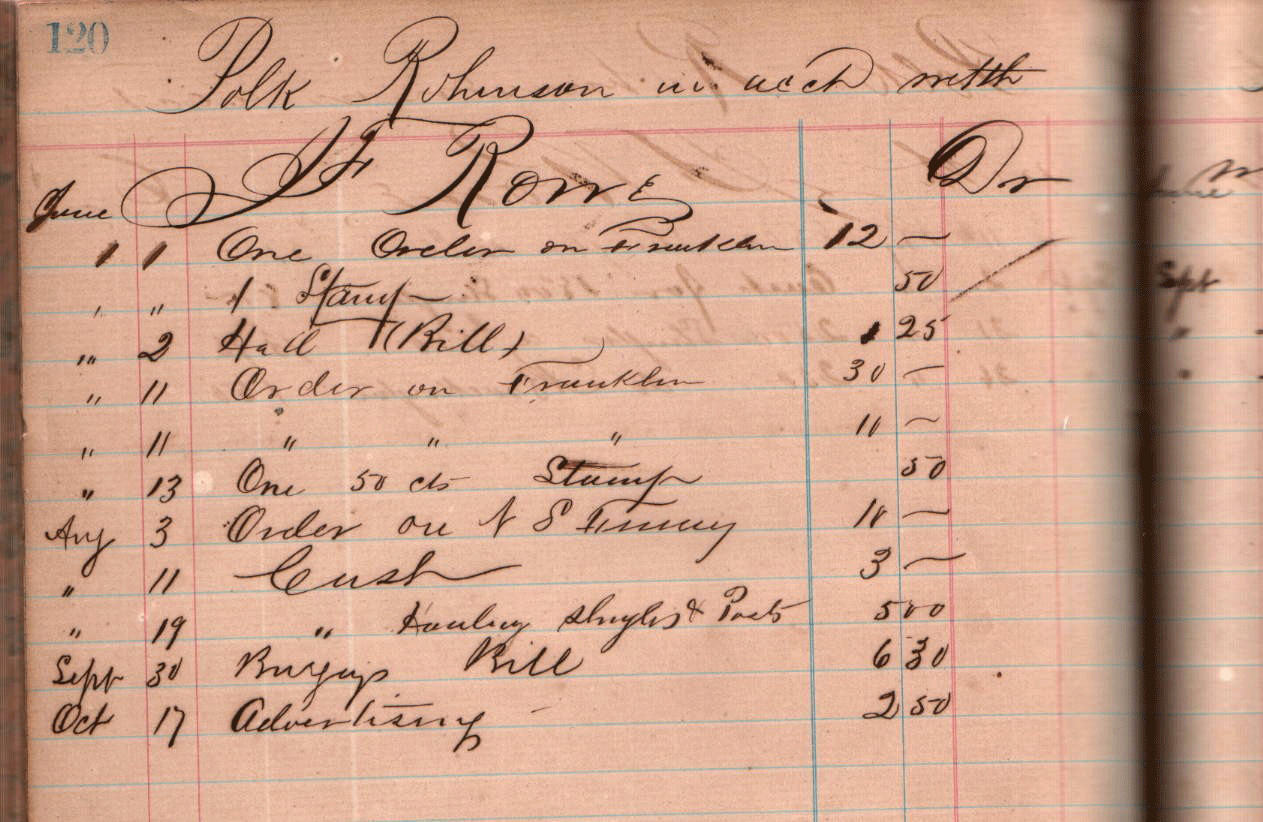 120
Polk Robinson in acct with
J F Rowe Dr
June
1 1 One Order on Franklin 12 —
, " 1 Stamp 50
" 2 Hall (Bill) 1 25
" 11 Order on Franklin 30 —
" 11 " " " 10 —
" 13 One 50 cts Stamp 50
Aug 3 Order on N S Finney 10 —
" 11 Cash 3 —
" 19 " Hauling shingles & Posts 5 00
Sept 30 Bill 6 30
Oct 17 Advertising 2 50
Sept